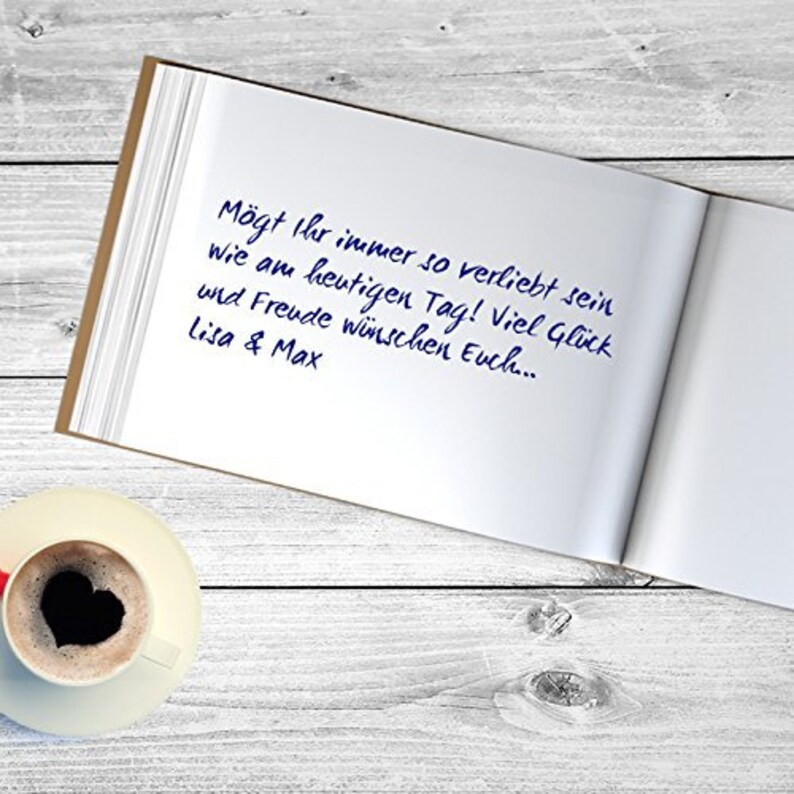 Mögt Ihr immer so verliebt sein
wie am heutigen Tag! Viel Glück
und Freude wünschen Euch...
Lisa & Max